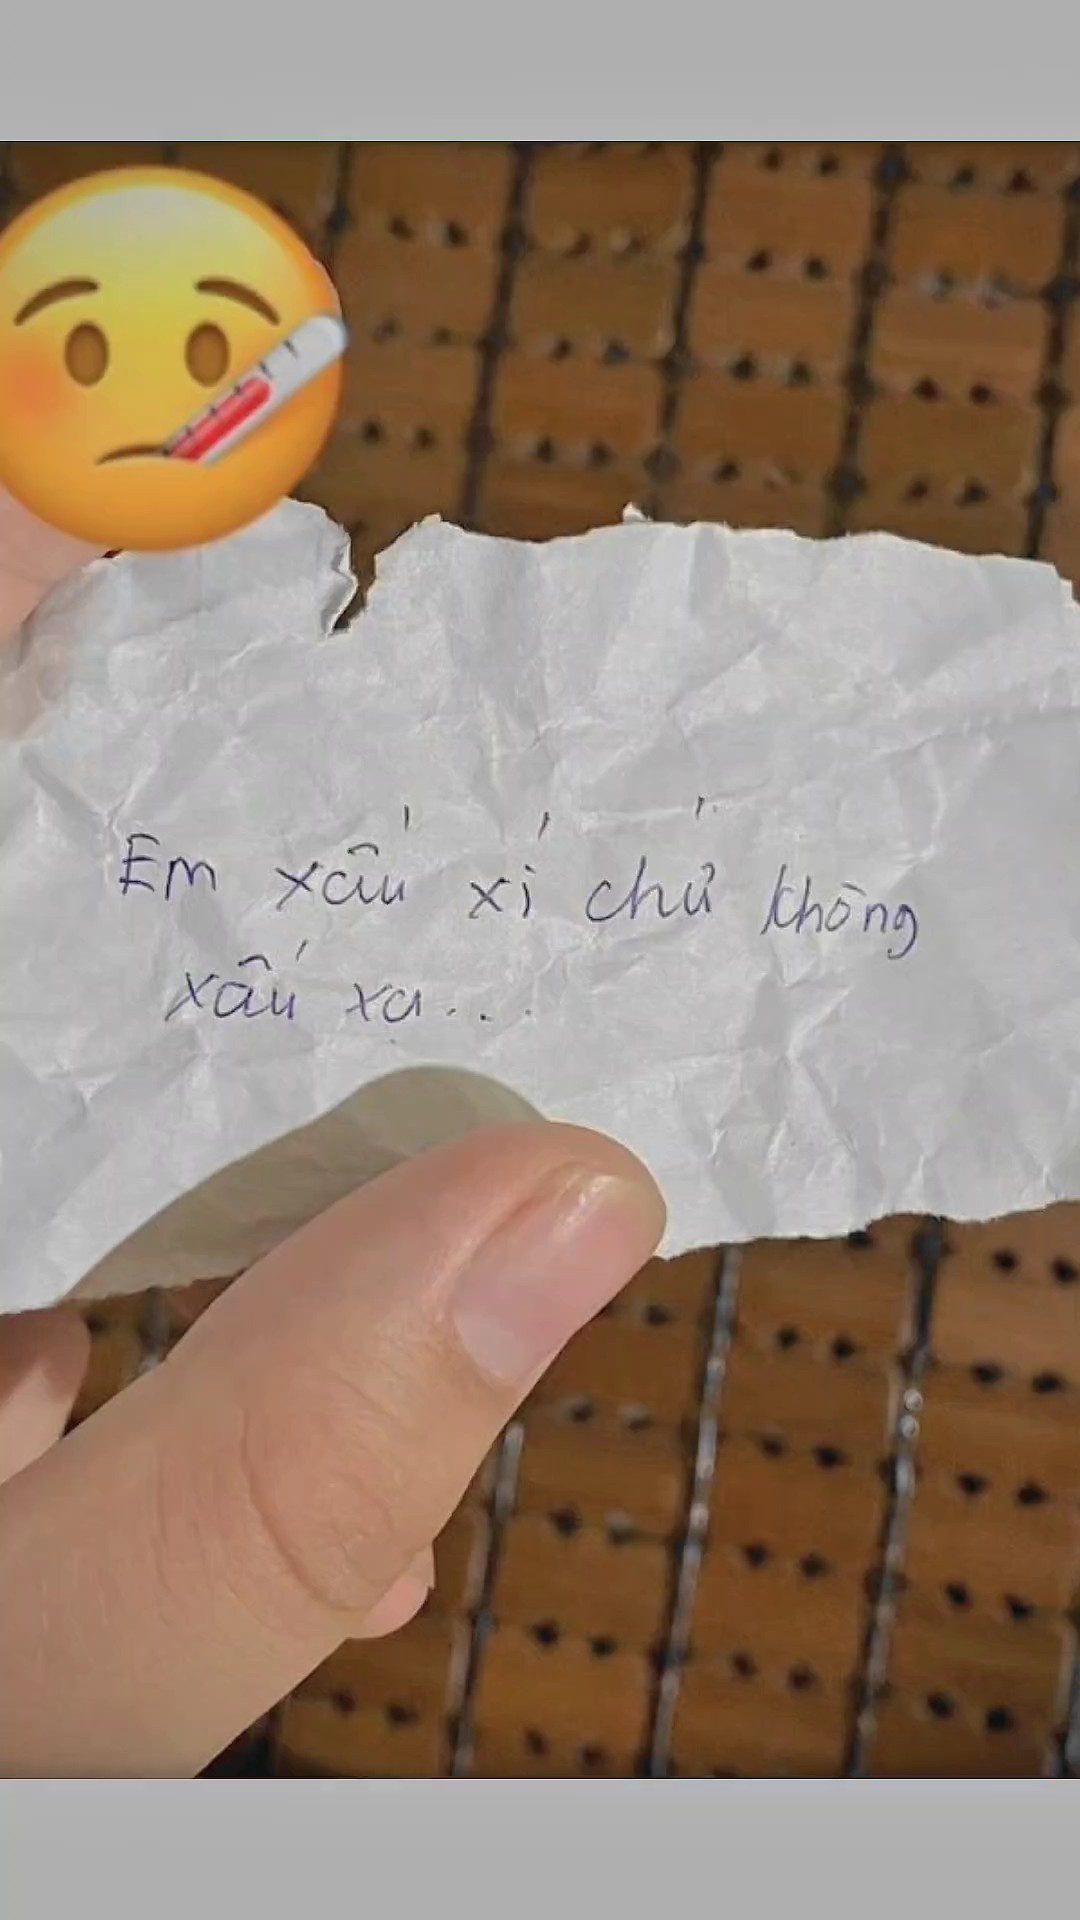 Em xấu xí chứ không
xấu xa...